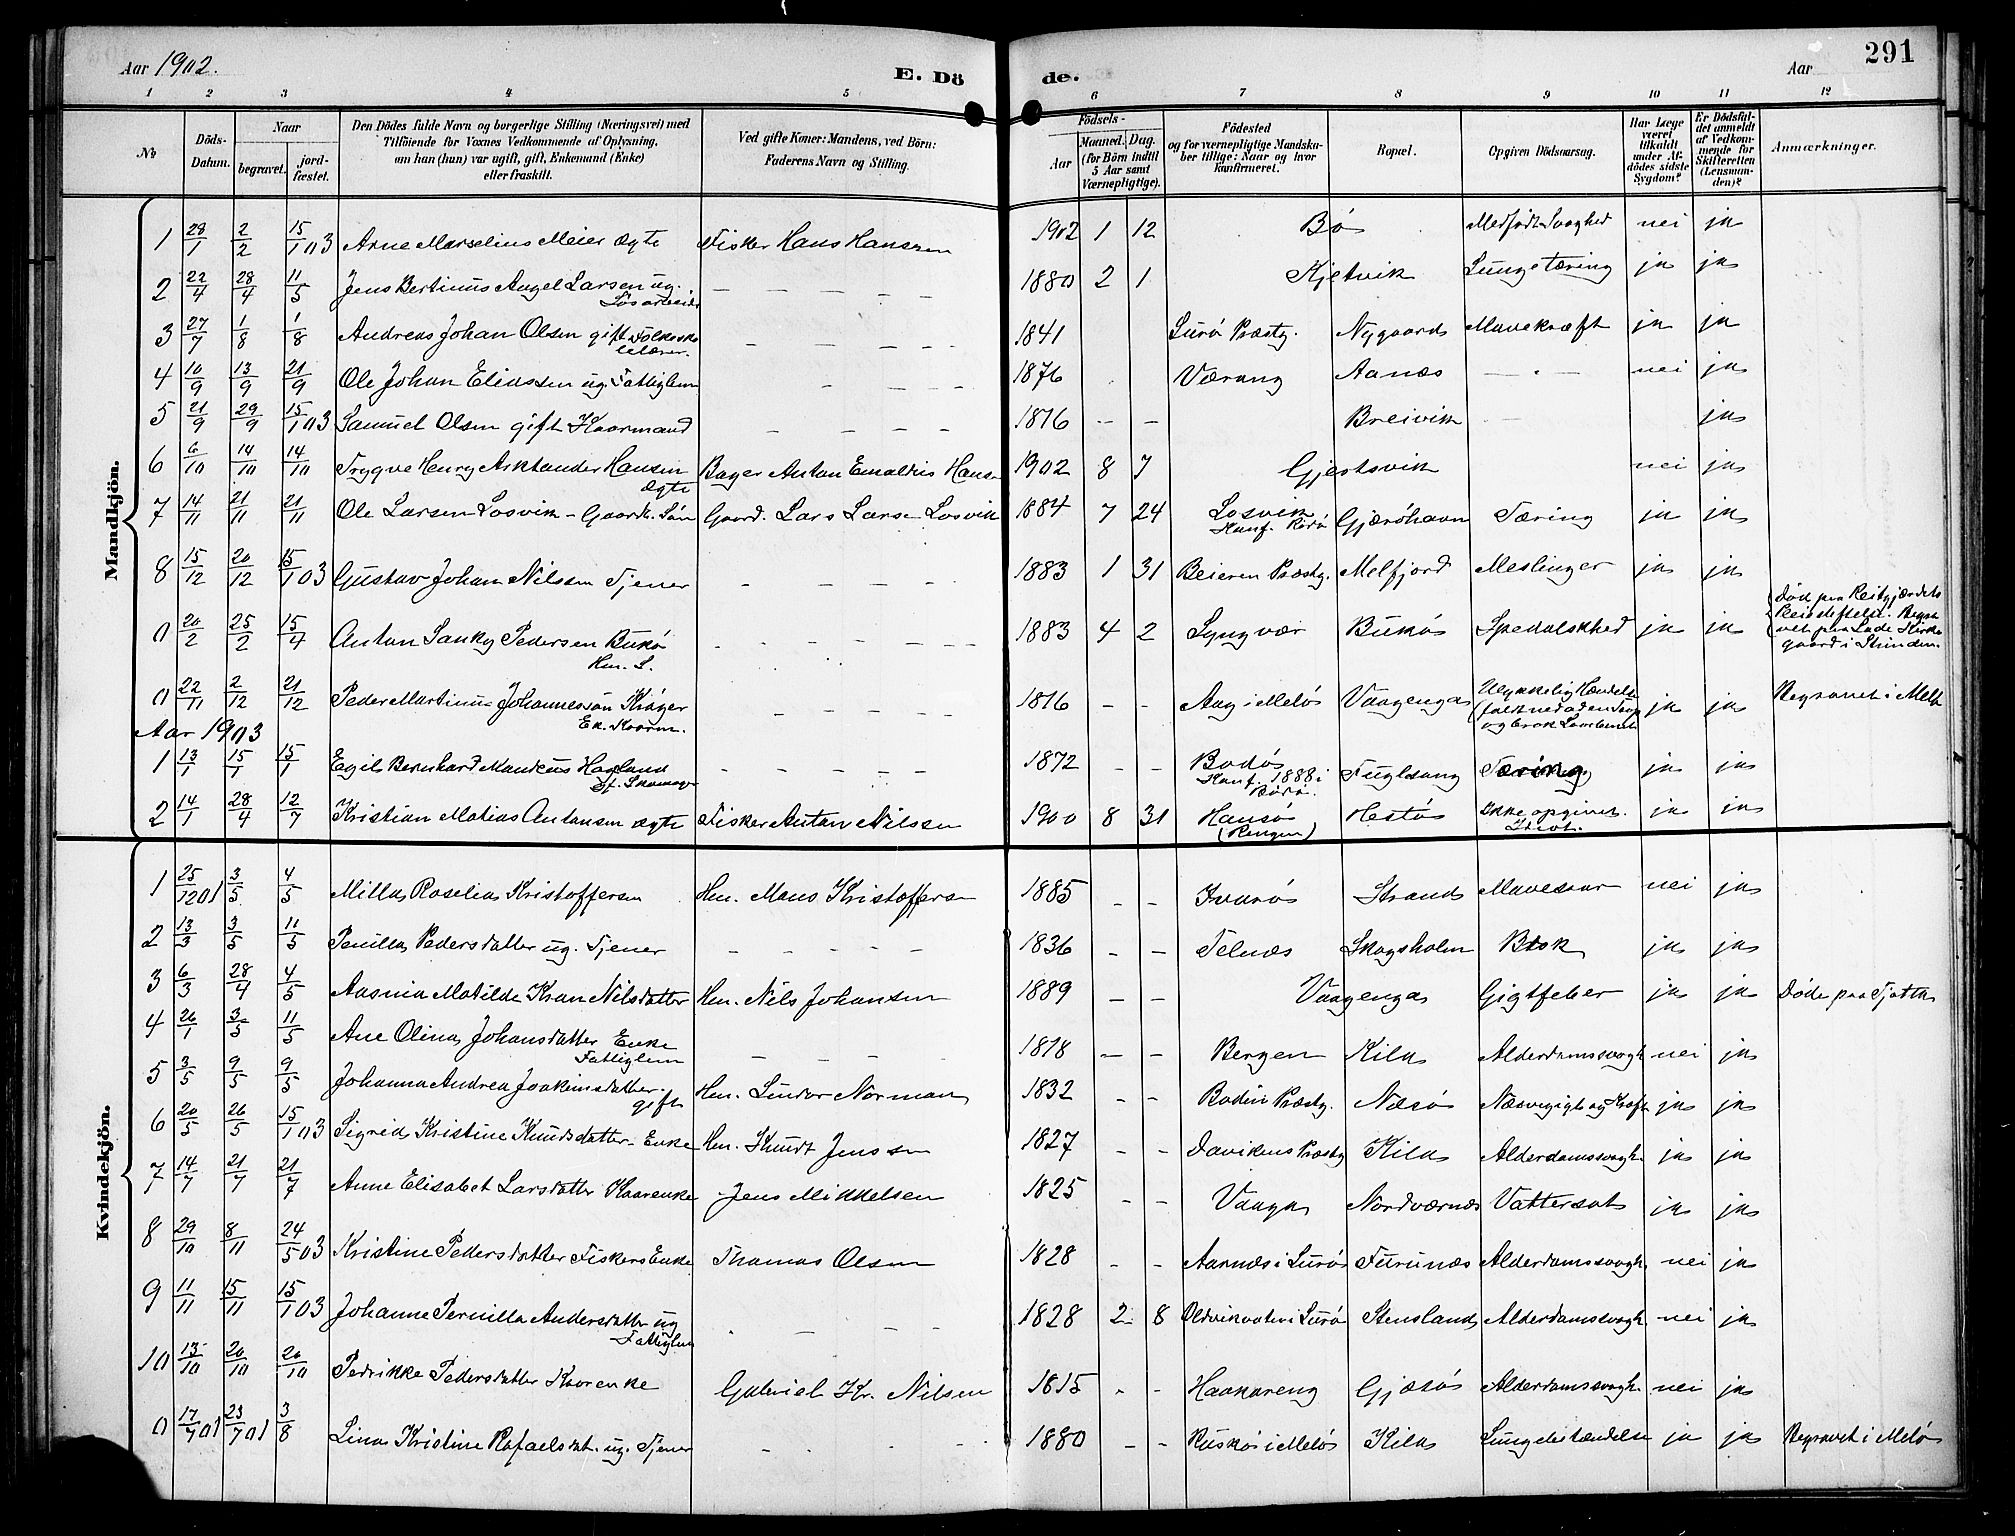 Aar 1902. E. Dö de. Aar 291
1 2 3 4 5 6 7 8 9 10 11 12
No Döds-Datum. Naar begravet. jordfæstet. Den Dödes fulde Navn og borgerlige Stilling (Næringsvei) med Tilföiende for Voxnes Vedkommende af Oplysning, om han (hun) var ugift, gift, Enkemand (Enke) eller fraskilt. Ved gifte Koner: Mandens, ved Börn: Faderens Navn og Stilling. Födsels- Aar Maaned. Dag. (for Börn indtil 5 Aar samt Værnepligtige). Födested og for værnepligtige Mandskaber tillige: Naar og hvor konfirmeret. Bopæl. Opgiven Dödsaarsag. Har Læge været tilkaldt under Afdödes sidste Sygdom? Er Dödsfaldet anmeldt af Vedkommende for Skifteretten (Lensmanden)? Anmærkninger.
Mandkjön.
1 28/1 2/2 15/1 03 Arne Marselius Meier ægte Fisker Hans Hansen 1902 1 12 Bø Medfødt Svaghed nei ja
2 22/4 28/4 11/5 Jens Bertinus Angel Larsen ug. Løsarbeider – – – – 1880 2 1 Kjelvik Lungetæring ja ja
3 27/7 1/8 1/8 Andreas Johan Olsen gift Folkeskolelærer. – – – – 1841 Lurø Præstg. Nygaard Mavekræft ja ja
4 10/9 13/9 21/9 Ole Johan Eliassen ug. Fattiglem – – – 1876 Værang Aanes – " – nei ja
5 21/9 29/9 15/1 03 Samuel Olsen gift Kaarmand – – – – 1816 – – Breivik – ja
6 6/10 14/10 14/10 Trygve Henry Arktander Hansen ægte Bager Anton Hans 1902 8 7 Gjestsvik nei ja
7 14/11 21/11 21/11 Ole Larsen Losvik – Gaardb. Søn Gaard. Lars Larse Losvik 1884 7 24 Losvik Konf. Rødø Gjærøhavn Tæring ja ja
8 15/12 20/12 15/1 03 Gustav Johan Nilssen Tjener – – – – 1883 1 31 Beieren Præstg. Melfjord Meslinger ja ja
0 20/2 25/2 15/4 Anton Sanky Pedersen Bukø Hm. S. – – – – 1883 4 2 Lyngvær Bukø Spedalskhed ja ja Død paa Reitgjærdets Pleiestiftelse. Begravet paa Lade Kirkegaard i Strinden.
0 22/11 2/12 21/12 Peder Martinus Johannesson Krøger Ek. Kaarm. – – – – 1816 – – Aag i Melø Vaagenga Ulykkelig Hændelse ja ja Begravet i Melø
Aar 1903
1 13/1 15/1 15/1 Egil Bernhard Mankus Hagland gf. Skomager – – – – – 1872 – – Bodø Konf. 1888 i Rødø. Fuglsang Tæring ja ja
2 14/1 28/4 12/7 Kristian Matias Antonsen ægte Fisker Anton Nilssen 1900 8 31 Hansø (Ringen) Hestø Ikke opgivet. ja ja
Kvindekjön.
1 25/12 01 3/5 4/5 Milla Roselia Kristoffersen Hm. Mons Kristoffersn 1885 – – Ivarø Strand Mavesaar nei ja
2 13/3 3/5 11/5 Penilla Pedersdatter ug. Tjener – – – – 1836 – – Telnæs Skogsholm Brok ja ja
3 6/3 28/4 4/5 Aasnia Matilde Kran Nilsdatter Hm. Nils Johansen 1889 – – Vaagenga Gigtfeber ja ja Døde paa Tjøtta
4 26/1 3/5 11/5 Ane Olina Johansdatter Enke Fattiglem – – – 1818 – – Bergen Kila Alderdomssvagh nei ja
5 3/5 9/5 9/5 Johanna Andrea Joakimsdatter. gift Hm. Lindor Norman 1832 – – Bodin Præstg. Næsø Næsvegigt og Kræft ja ja
6 20/5 26/5 15/1 03 Sigrid Kristine Knudsdatter. Enke Hm. Knudt Jenssen 1827 – – Davikens Præstg Kila Alderdomssvagh. ja ja
7 14/7 21/7 21/7 Anne Elisabet Larsdatter Kaarenke Jens Mikkelsen 1825 – – Vaaga Nordværnes Vattersot ja ja
8 29/10 8/11 24/5 03 Kristine Pedersdatter Fiskers Enke Thomas Olsen 1828 – – Aarnæs i Lurø Furunæs Alderdomssvagh. nei ja
9 11/11 15/11 15/1 03 Johanne Pernilla Andersdatter ug Fattiglem – – – – 1828 2 8 Oldvikvatn i Lurø Stensland Alderdomssvagh. nei ja
10 13/10 20/10 20/10 Pedrikke Pedersdatter Kaarenke Gabriel Kr. Nilsen 1815 – – Haakareng Gjæsø Alderdomssvagh nei ja
0 17/7 01 23/7 01 3/8 Lina Kristine Rafaelsdat. ug. Tjener – – – 1880 – – Ruskø i Melø Kila Lungebetændelse ja ja Begravet i Melø